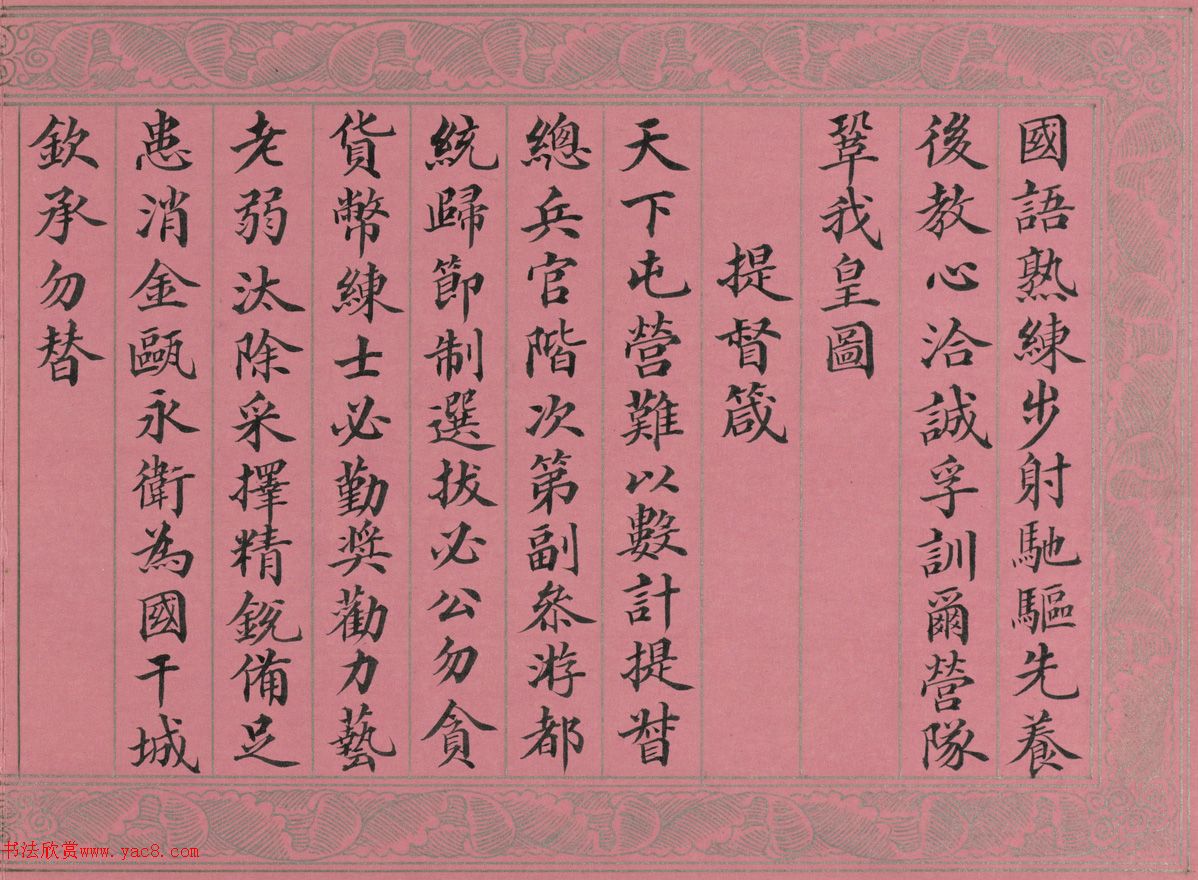 國語熟練步射馳驅先養
後教心洽誠孚訓爾營隊
鞏我皇圖
提督箴
天下屯營難以數計提督
總兵官階次第副叅游都
統歸節制選拔必公勿貪
貨幣練士必勤奨勸力藝
老弱汰除采擇精銳備足
患消金甌永衛為國干城
欽承勿替
书法欣赏www.yac8.com